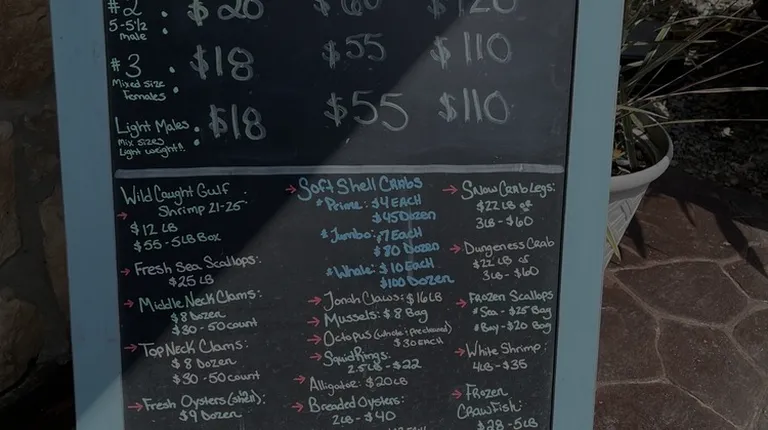 #2 $20 $60 $120
5-5½
male
#3 $18 $55 $110
Mixed size
Females
Light Males $18 $55 $110
Mix sizes
Light weight!!
Wild Caught Gulf
Shrimp 21-25
$12 LB
$55 - 5LB Box
Fresh Sea Scallops:
$25 LB
Middle Neck Clams:
$8 Dozen
$30 - 50 count
Top Neck Clams:
$8 Dozen
$30 - 50 count
Fresh Oysters (shell):
$9 Dozen
Soft Shell Crabs
* Prime: $4 Each
$45 Dozen
* Jumbo: $7 Each
$80 Dozen
* Whale: $10 Each
$100 Dozen
Jonah Claws: $16 LB
Mussels: $8 Bag
Octopus (whole & precleaned)
$30 Each
Squid Rings:
2.5 LB - $22
Alligator: $20 LB
Breaded Oysters:
2LB - $40
Snow Crab Legs:
$22 LB or
3LB - $60
Dungeness Crab
$22 LB or
3LB - $60
Frozen Scallops
* Sea - $25 Bag
* Bay - $20 Bag
White Shrimp:
4LB - $35
Frozen
Crawfish:
$28 - 5LB